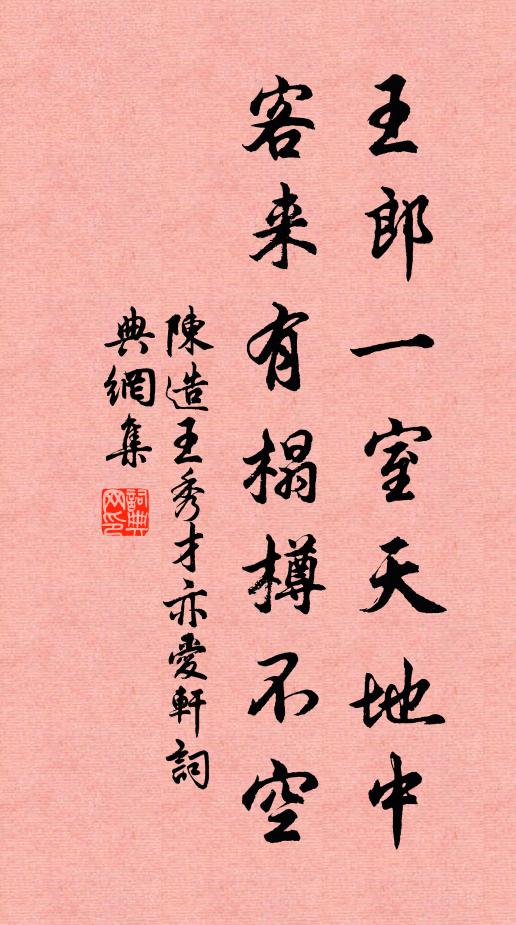 王郎一室天地中
客来有榻樽不空
陳造王秀才亦愛軒詞
典網集
詞典網印